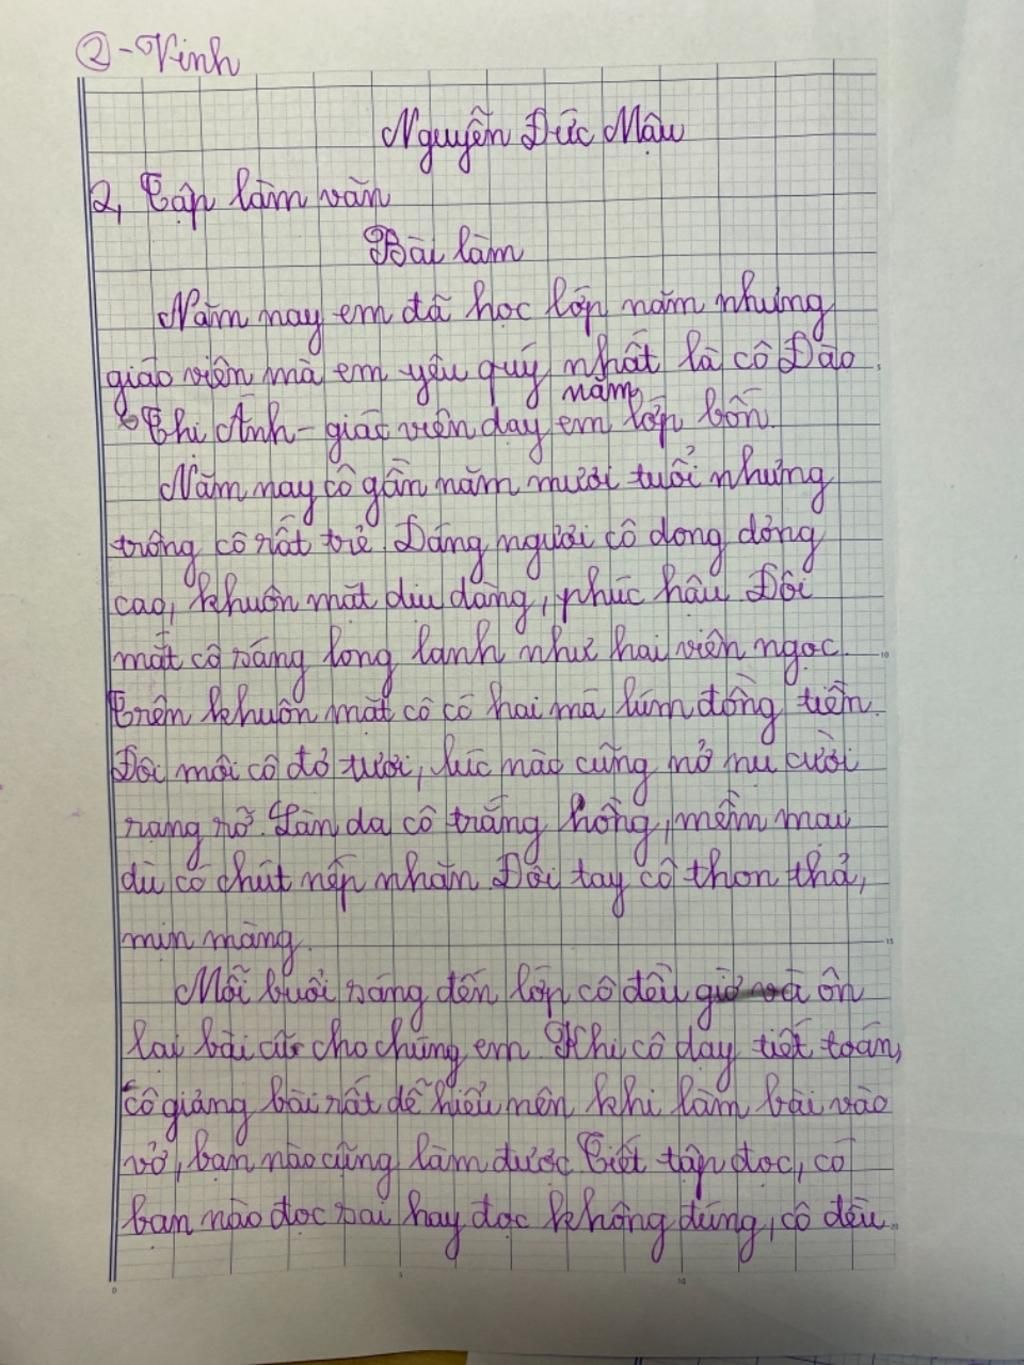 ② - Vinh
Nguyễn Đức Mậu
2, Tập làm văn
Bài làm
Năm nay em đã học lớp năm nhưng
giáo viên mà em yêu quý nhất là cô Đào
năm
Thị Ánh - giáo viên dạy em lớp bốn.
Năm nay cô gần năm mươi tuổi nhưng
trông cô rất trẻ. Dáng người cô dong dỏng
cao, khuôn mặt dịu dàng, phúc hậu. Đôi
mắt cô sáng long lanh như hai viên ngọc.
Trên khuôn mặt cô có hai má lúm đồng tiền.
Đôi môi cô đỏ tươi, lúc nào cũng nở nụ cười
rạng rỡ. Làn da cô trắng hồng, mềm mại
dù có chút nếp nhăn. Đôi tay cô thon thả,
mịn màng.
Mỗi buổi sáng đến lớp cô đều giở và ôn
lại bài cũ cho chúng em. Khi cô dạy tiết toán,
cô giảng bài rất dễ hiểu nên khi làm bài vào
vở, bạn nào cũng làm được. Tiết tập đọc, có
bạn nào đọc sai hay đọc không đúng, cô đều
10
15
0
5
10